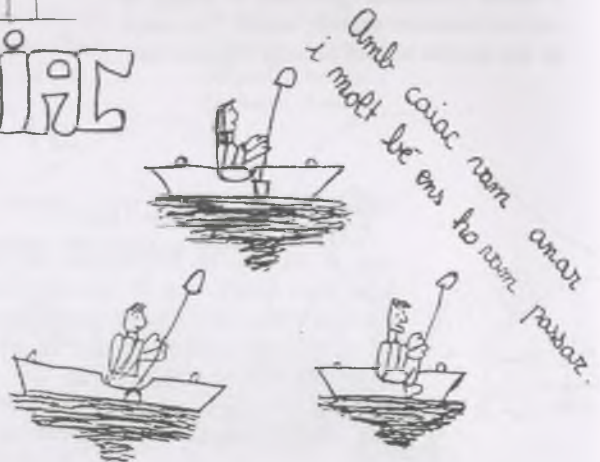 IAC
Amb caiac vam anar
i molt bé ens ho vam passar.